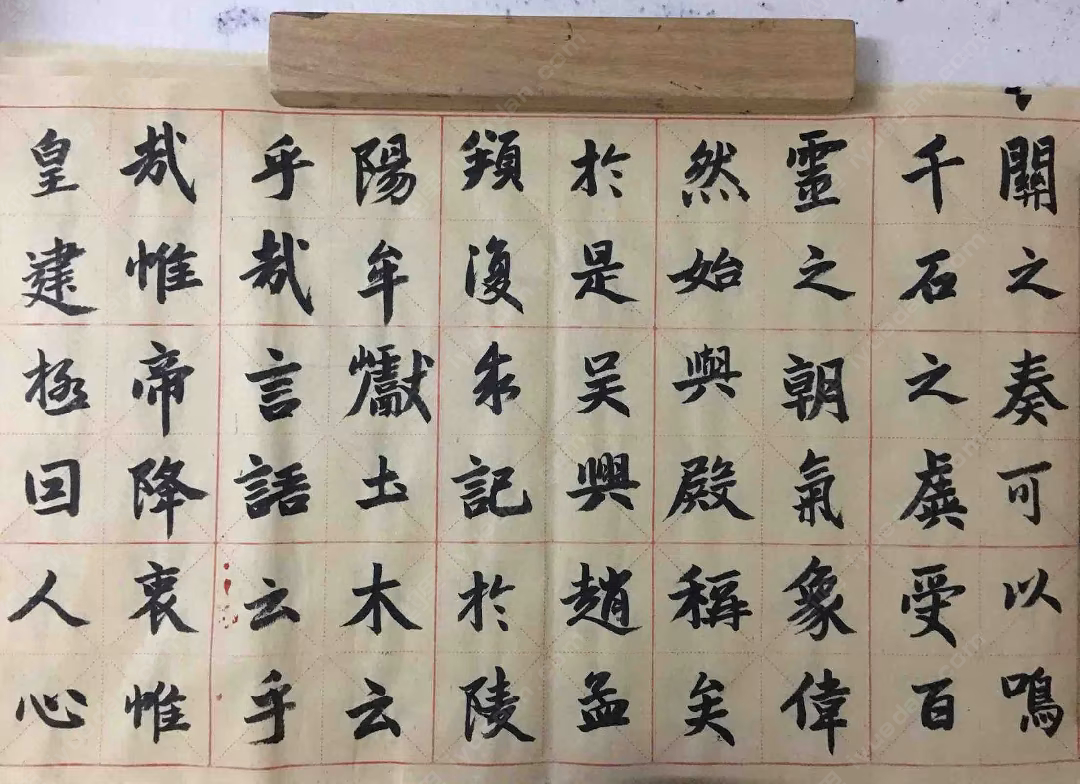 關之奏可以鳴
千石之虡受百
靈之朝氣象偉
然始與殿稱矣
於是吳興趙孟
頫復求記於陵
陽牟巘土木云
乎哉言語云乎
哉惟帝降衷惟
皇建極回人心